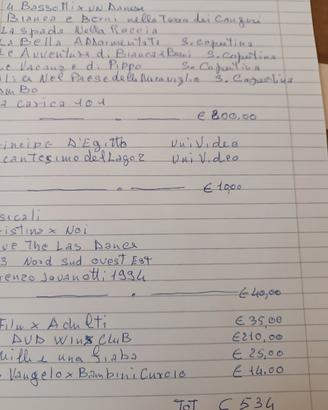 4 Bassotti x un Danese
Bianca e Berni nella Terra dei Canguri
La spada Nella Roccia
La Bella Addormentata S. copertina
Le Avventure di Bianca e Berni S. Copertina
Le Vacanze di Pippo S. Copertina
Nel Paese delle Meraviglie S. Copertina
Bo
a carica 101
€ 800,00
incipe D'Egitto Uni Video
cantesimo del Lago 2 Uni Video
€ 10,00
sicali
istina x Noi
ve The Las Dance
3 Nord Sud ovest Est
renzo Jovanotti 1994
€ 40,00
Film x Adulti € 35,00
DVD Winx Club €210,00
Mille e una Fiaba € 25,00
Vangelo x Bambini Curcio € 14,00
Tot € 534